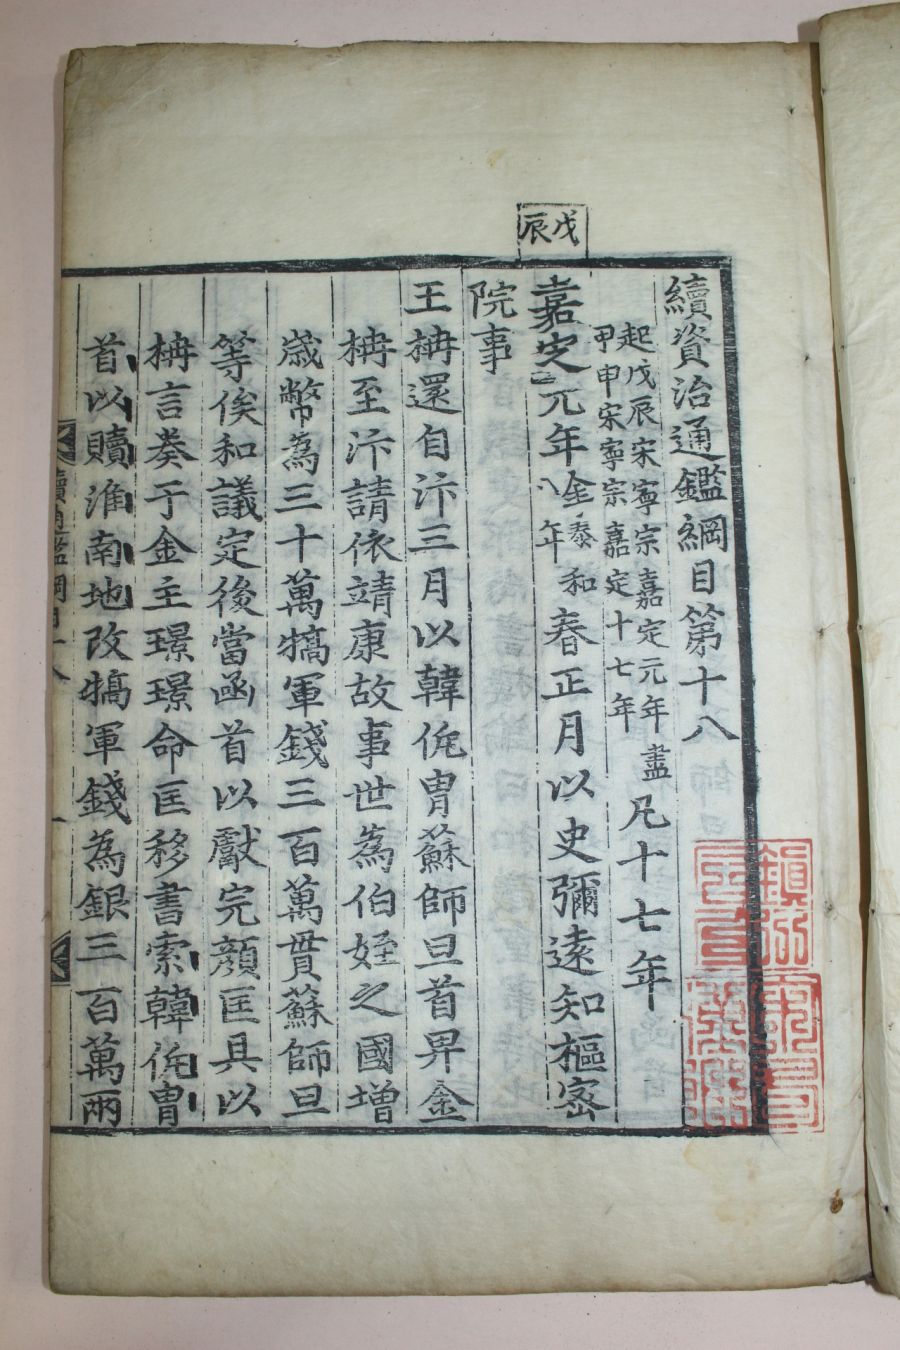 戊辰
續資治通鑑綱目第十八
起戊辰宋寧宗嘉定元年盡
甲申宋寧宗嘉定十七年
凡十七年
嘉定元年金泰和八年春正月以史彌遠知樞密
院事
王柟還自汴三月以韓侂冑蘇師旦首畀金
柟至汴請依靖康故事世為伯姪之國增
歲幣為三十萬犒軍錢三百萬貫蘇師旦
等俟和議定後當函首以獻完顏匡具以
柟言奏于金主璟璟命匡移書索韓侂冑
首以贖淮南地改犒軍錢為銀三百萬兩
續通鑑綱目十八
一